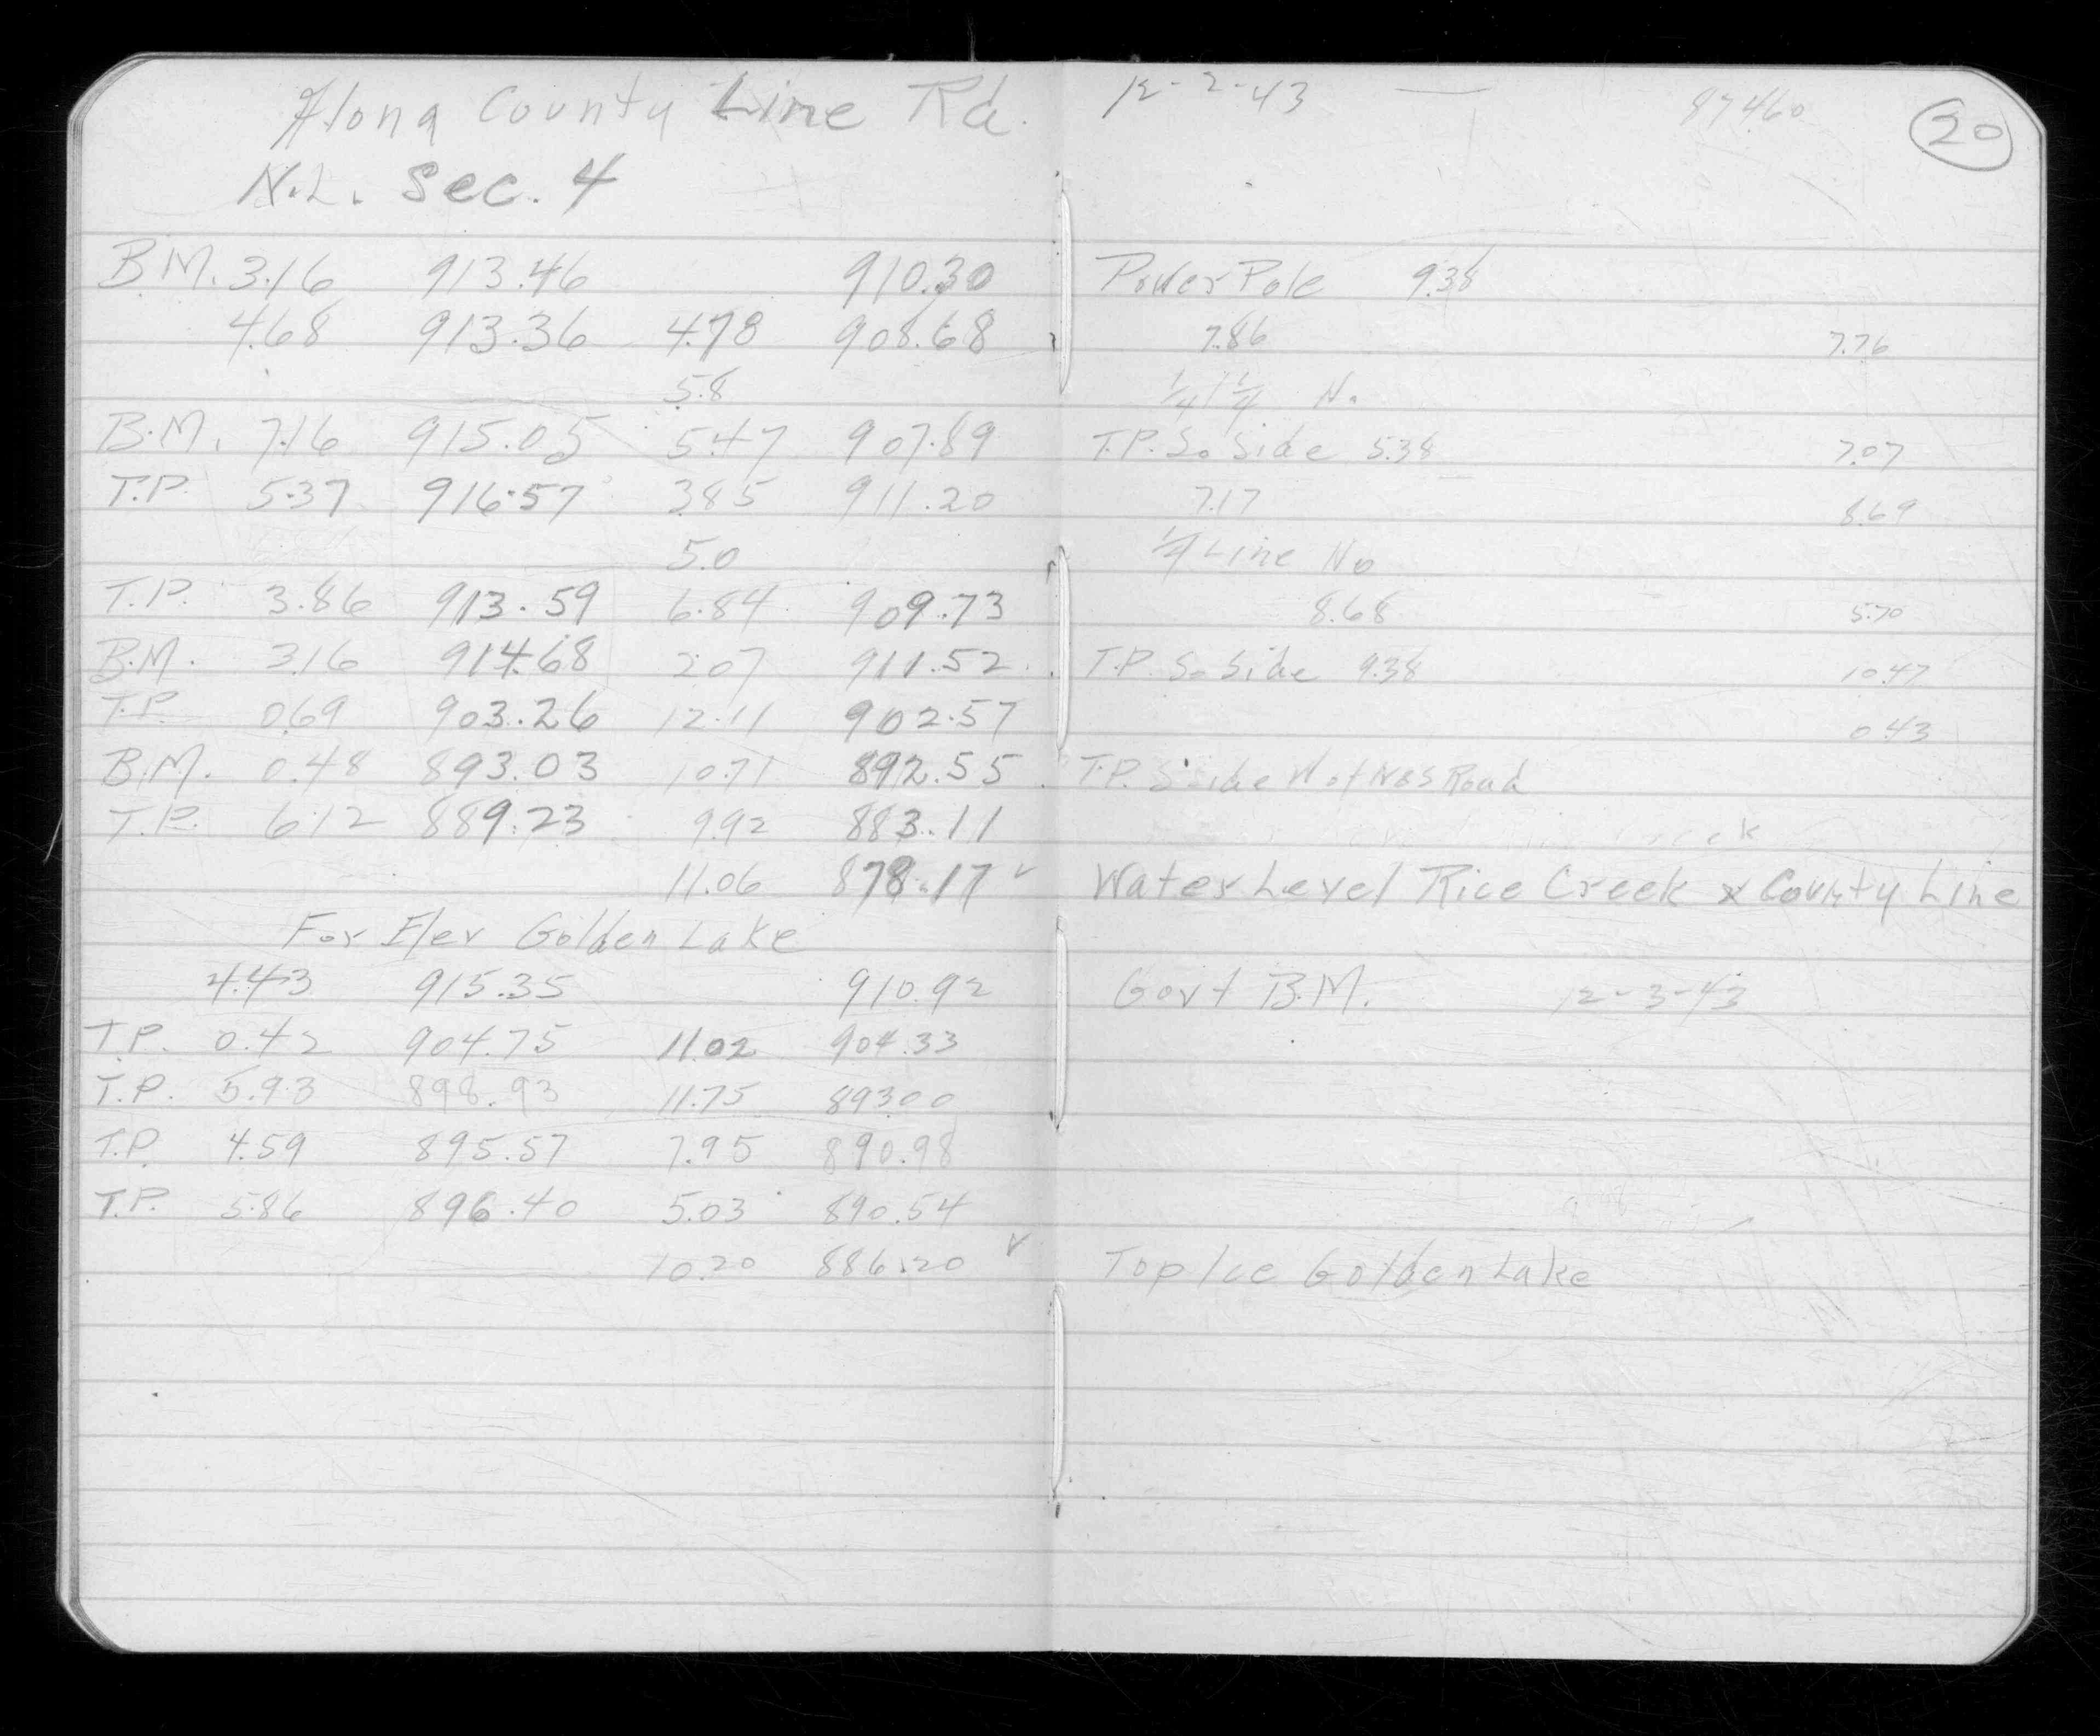 Along County Line Rd. 12-2-43 — 87460 20
N.L. Sec. 4
B.M. 3.16 913.46 910.30 Power Pole 9.38
4.68 913.36 4.78 908.68 7.86 7.76
5.8 1/4 1/4 N.
B.M. 7.16 915.05 5.47 907.89 T.P. So Side 5.38 7.07
T.P. 5.37 916.57 3.85 911.20 7.17 8.69
5.0 1/4 Line No
T.P. 3.86 913.59 6.84 909.73 8.68 5.70
B.M. 3.16 914.68 2.07 911.52 T.P. So Side 9.38 10.47
T.P. 0.69 903.26 12.11 902.57 0.43
B.M. 0.48 893.03 10.71 892.55 T.P. S Side W of N&S Road
T.P. 6.12 889.23 9.92 883.11
11.06 878.17 ✓ Water Level Rice Creek x County Line
For Elev Golden Lake
4.43 915.35 910.92 Govt B.M. 12-3-43
T.P. 0.42 904.75 11.02 904.33
T.P. 5.93 898.93 11.75 893.00
T.P. 4.59 895.57 7.95 890.98
T.P. 5.86 896.40 5.03 890.54
10.20 886.20 ✓ Top Ice Golden Lake